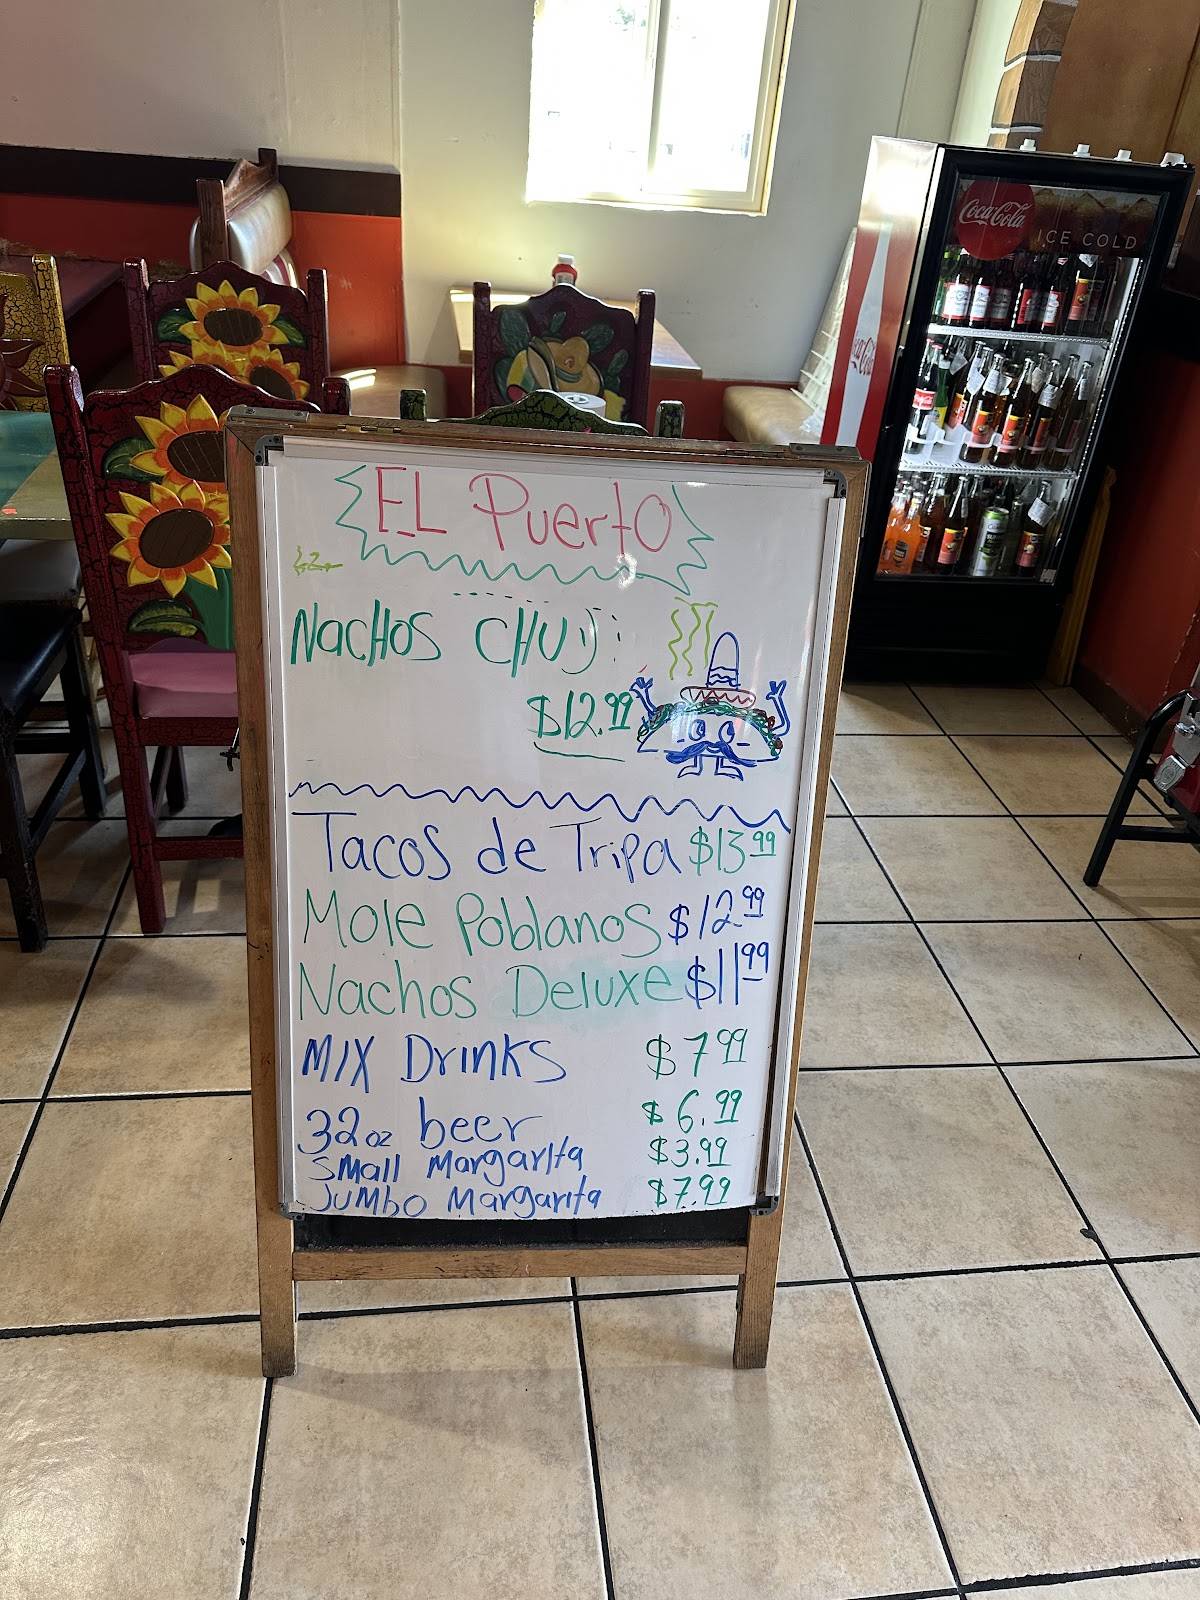 EL Puerto
NACHOS CHUJ
$12.99
Tacos de Tripa $13.99
Mole Poblanos $12.99
Nachos Deluxe $11.99
MIX Drinks $7.99
32oz beer $6.99
Small Margarita $3.99
Jumbo Margarita $7.99
Coca-Cola
ICE COLD
Coca-Cola